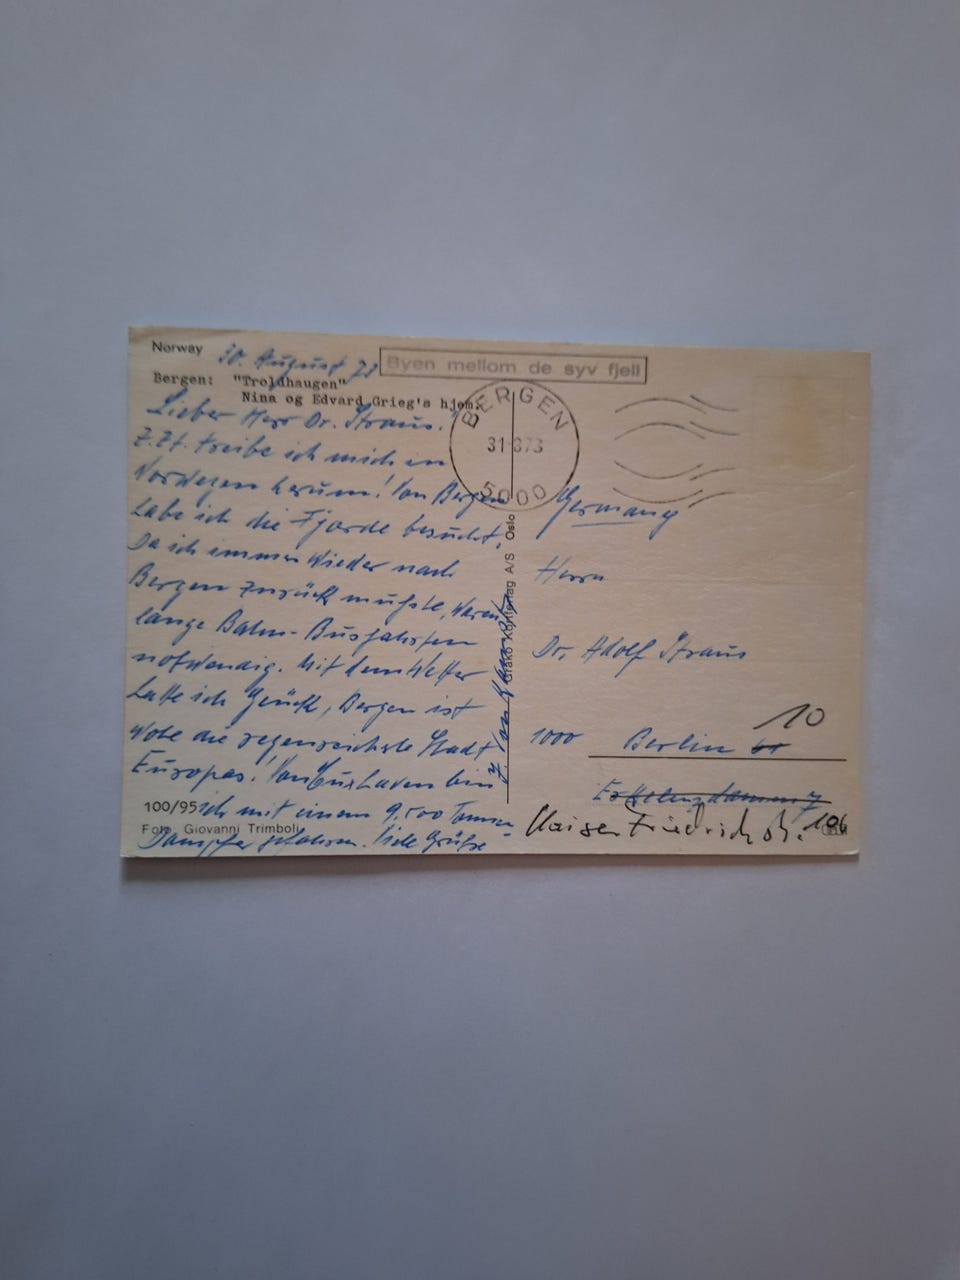 Norway
30. August 73
Bergen: "Troldhaugen"
Nina og Edvard Grieg's hjem.
Lieber Herr Dr. Straus!
Z.Zt. treibe ich mich in
Norwegen herum! Von Bergen
habe ich die Fjorde besucht,
da ich immer wieder nach
Bergen zurück mußte, waren
lange Bahn-Busfahrten
notwendig. Mit dem Wetter
hatte ich Glück, Bergen ist
wohl die regenreichste Stadt
Europas! Von Cuxhaven bin
100/95 ich mit einem 9.500 Tonnen-
Foto: Giovanni Trimboli
Dampfer gefahren. Viele Grüße
Byen mellom de syv fjell
BERGEN
31 8 73
5000
A/S Oslo
Germany
Herrn
Dr. Adolf Straus
10
1000 Berlin
Kaiser Friedrich str. 106